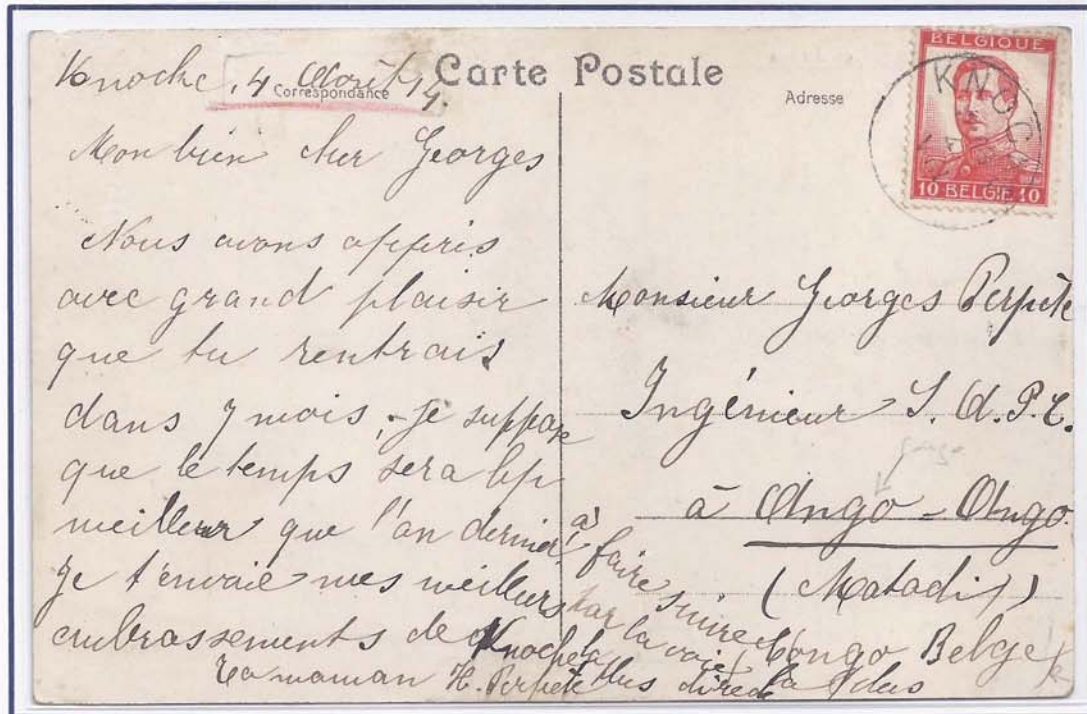 Carte Postale
Correspondance
Adresse
Knocke, 4 Août 14.
Mon bien cher Georges
Nous avons appris
avec grand plaisir
que tu rentrais
dans 7 mois, - je suppose
que le temps sera bp
meilleur que l'an dernier,
Je t'envoie mes meilleurs
embrassements de Knocke
Ta maman H. Perpète
BELGIQUE
10 BELGIE 10
KNOCKE
Monsieur Georges Perpète
Ingénieur S. A. P. C.
à Ango-Ango
(Matadi)
Congo Belge
à faire suivre
par la voie
la plus directe